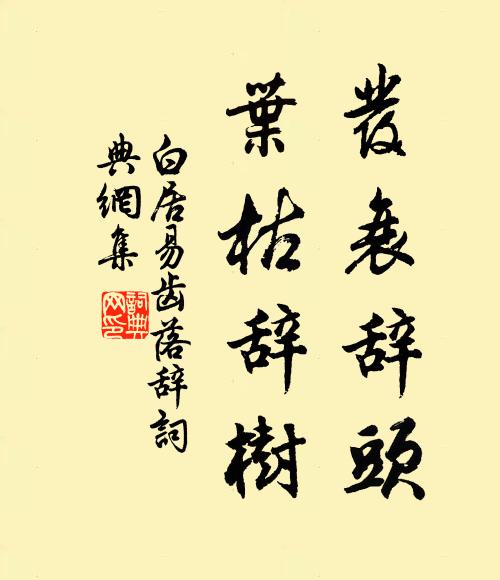 發衰辞頭
葉枯辞樹
白居易齿落辞詞
典網集
詞典
网印